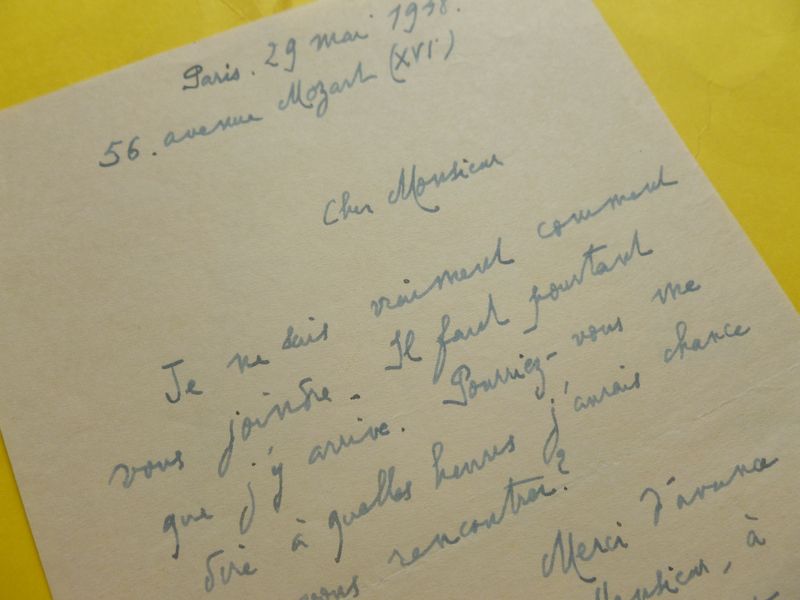 Paris. 29 mai 1938.
56. avenue Mozart (XVI)
Cher Monsieur
Je ne sais vraiment comment
vous joindre. Il faut pourtant
que j'y arrive. Pourriez-vous me
dire à quelles heures j'aurais chance
vous rencontrer?
Merci d'avance
Monsieur, à